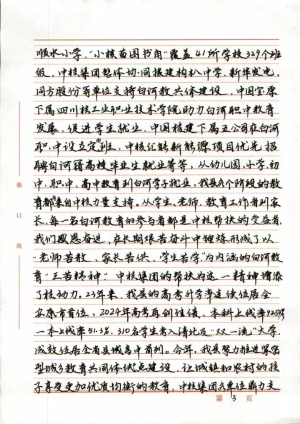 顺水小学，“小核苗图书角”覆盖41所学校329个班
级。中核集团整体协同援建构朳中学，新华发电，
同方股份等单位支持白河教共体建设，中国宝原
下属四川核工业职业技术学院助力白河职中教育
发展，促进学生就业，中国核建下属五公司在白河
职中设立定向班，中核汇能新能源项目优先招
聘白河籍高校毕业生就业等等，从幼儿园、小学、初
中、职中、高中教育到白河学子就业，我县各个阶段的教
育都来自中核力量支持，从学生、老师、教育工作者到家
长，每一名白河教育的参与者都是中核帮扶的受益者，
我们感恩奋进，在长期艰苦奋斗中锤炼形成了以
“老师苦教、家长苦供、学生苦学”为内涵的白河教育
“三苦精神”，中核集团的帮扶为这一精神增添
了核动力。23年来，我县的高考升学率连续位居全
安康市首位，2024年高考再创佳绩，本科上线率92%
一本上线率51.3%，310名学生考入清北及“双一流”大学，
成效位居全省县域高中前列。今年，我县努力推进紧密
型城乡教育共同体试点建设，让城镇和农村的孩
子享受更加优质均衡的教育，中核集团各单位鼎力支
装
订
线
第 3 页